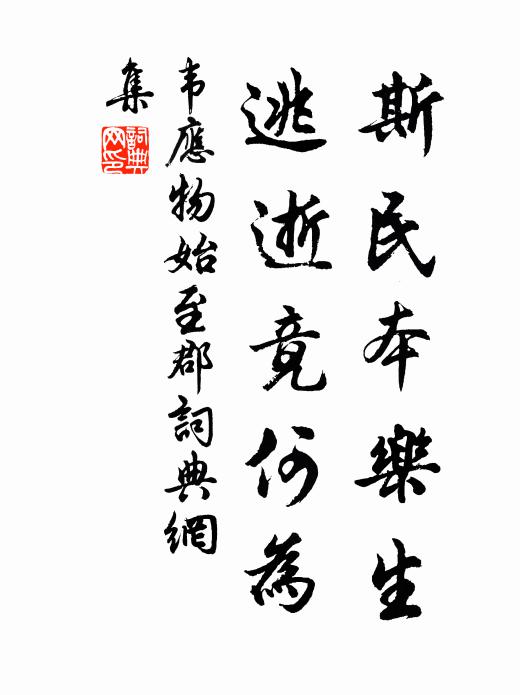 斯民本樂生
逃逝竟何為
韦應物始至郡詞典網
集
詞典网印